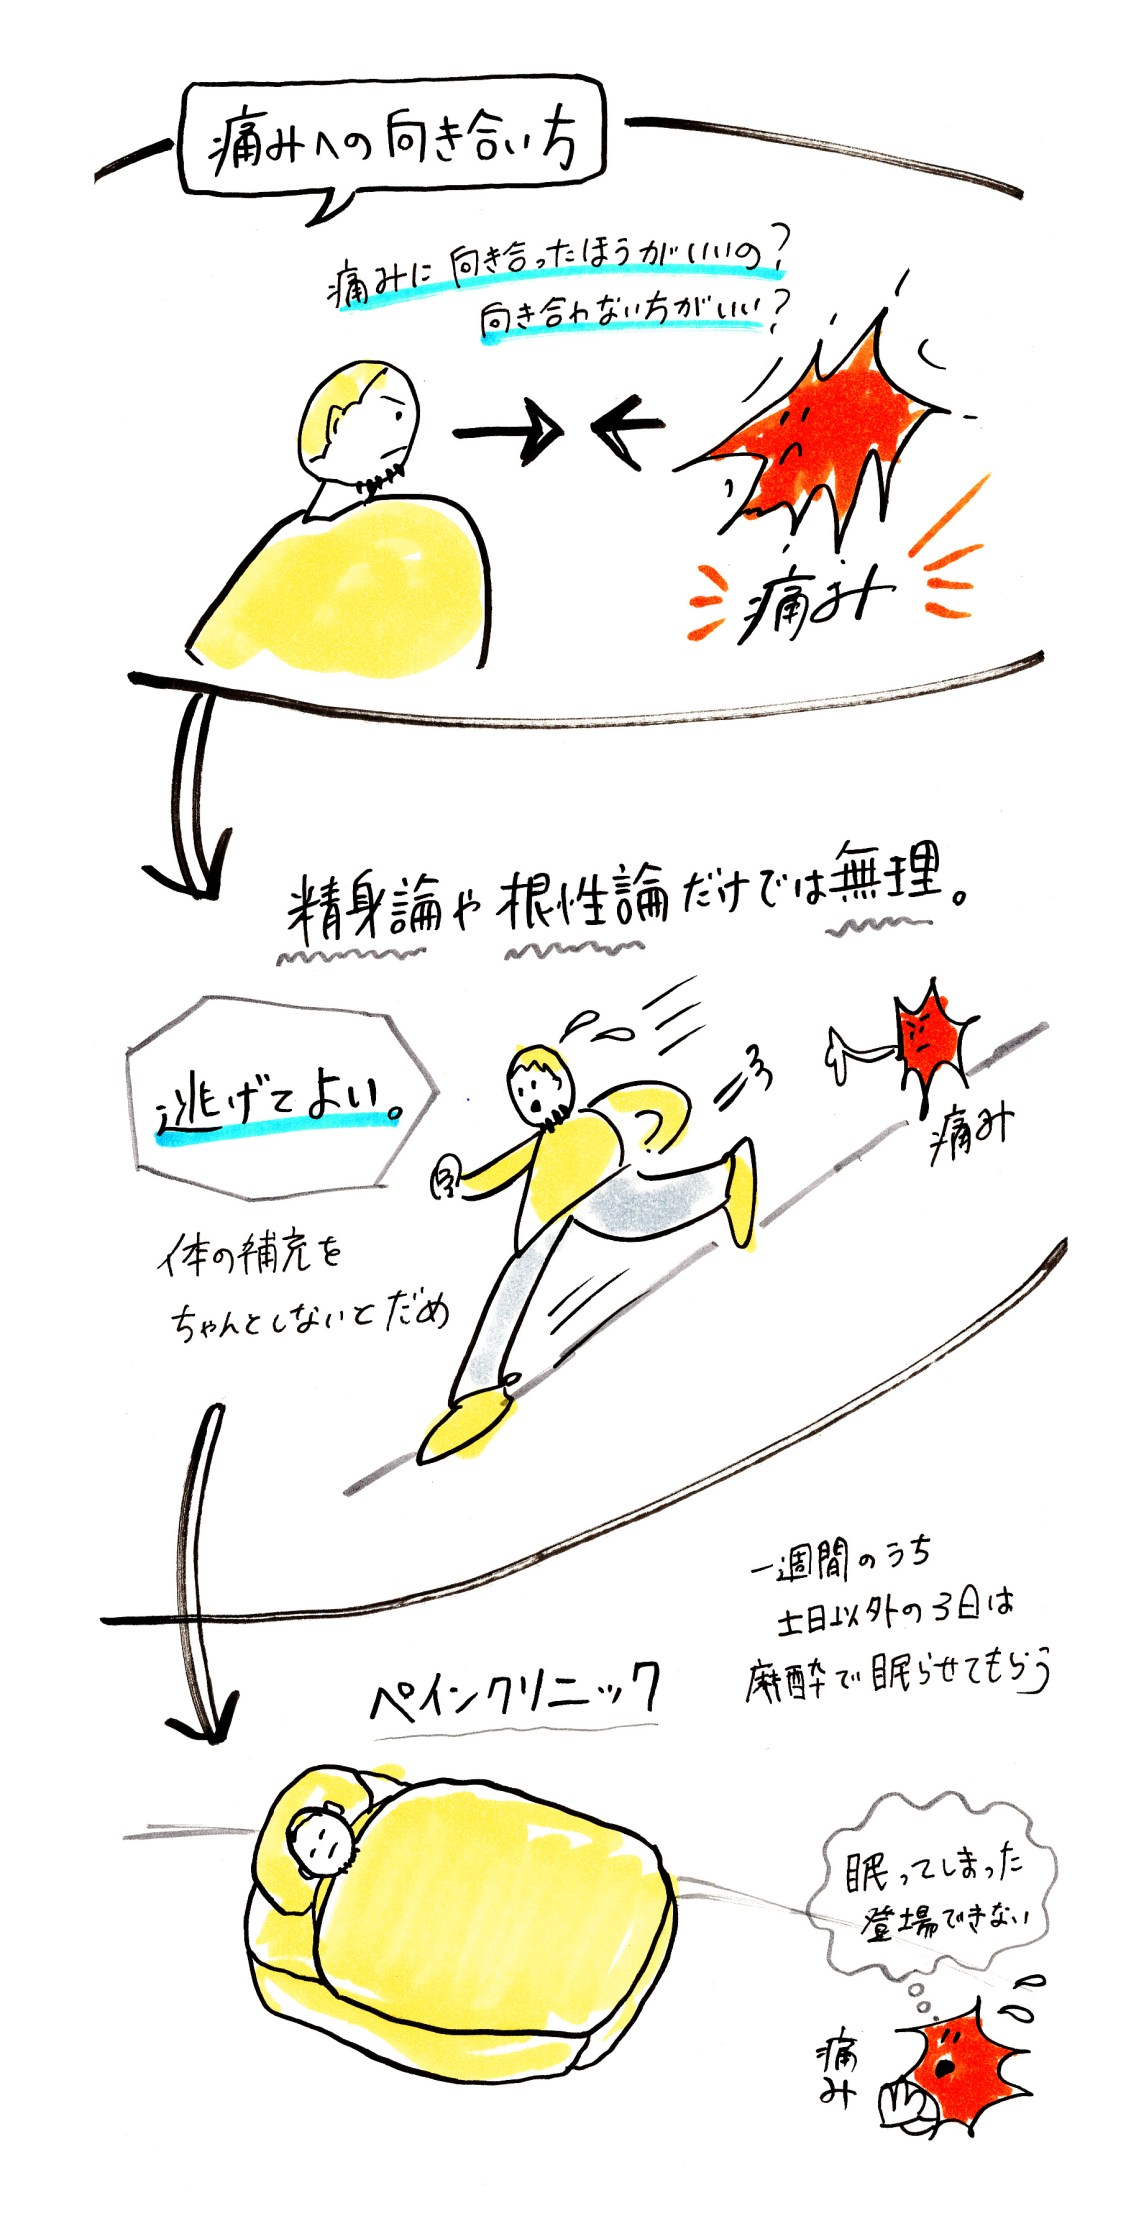 痛みへの向き合い方
痛みに向き合ったほうがいいの?
向き合わない方がいい?
痛み
精身論や根性論だけでは無理。
逃げてよい。
痛み
体の補充を
ちゃんとしないとだめ
一週間のうち
土日以外の3日は
麻酔で眠らせてもらう
ペインクリニック
眠ってしまった
登場できない
痛み